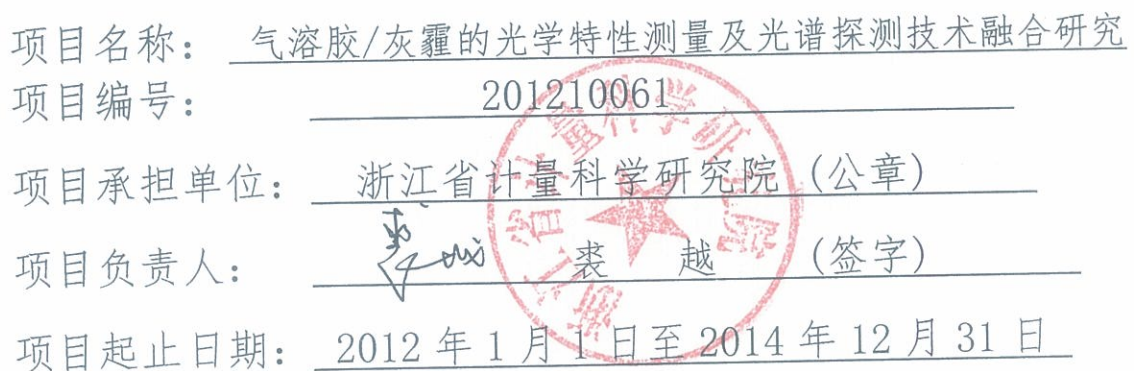 项目名称： 气溶胶/灰霾的光学特性测量及光谱探测技术融合研究
项目编号： 201210061
项目承担单位： 浙江省计量科学研究院（公章）
项目负责人： 裘 越 （签字）
项目起止日期： 2012 年 1 月 1 日至 2014 年 12 月 31 日
浙江省计量科学研究院